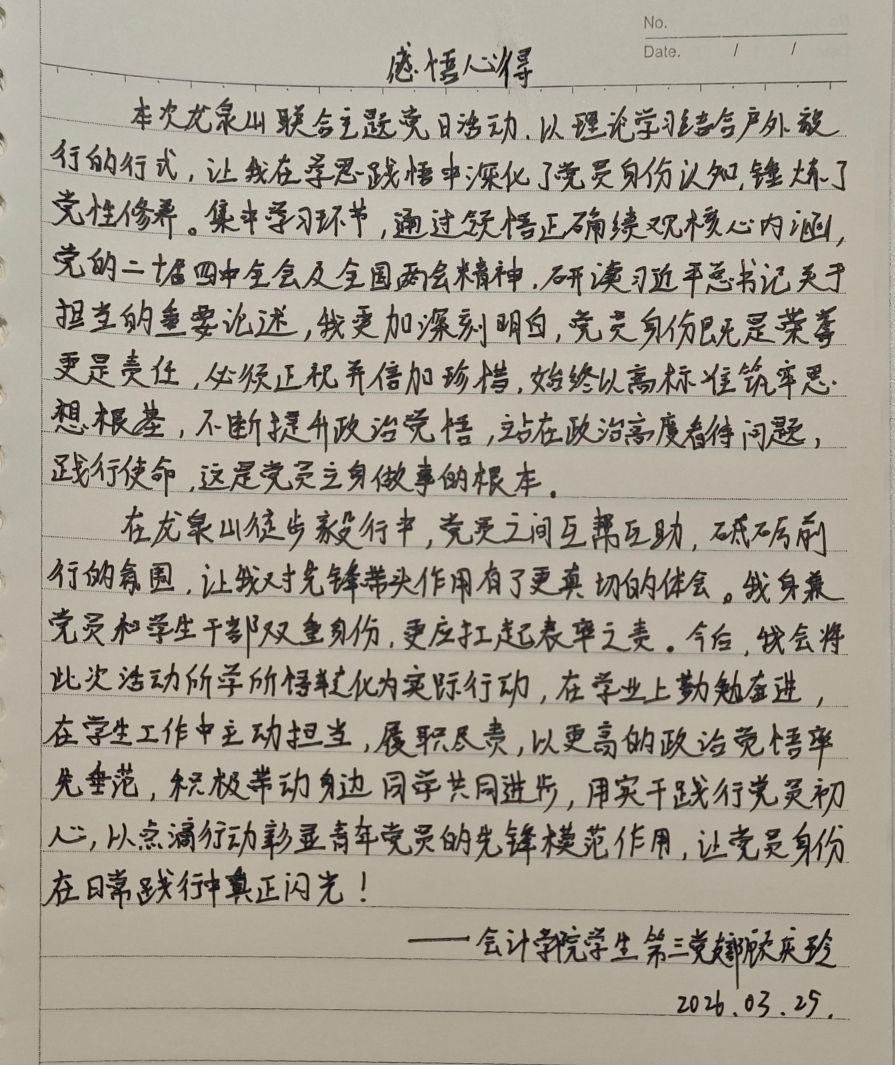 No.
Date. / /
感悟心得
本次龙泉山联合主题党日活动，以理论学习结合户外毅
行的行式，让我在学思践悟中深化了党员身份认知，锤炼了
党性修养。集中学习环节，通过领悟正确绩观核心内涵，
党的二十届四中全会及全国两会精神，研读习近平总书记关于
担当的重要论述，我更加深刻明白，党员身份既是荣誉
更是责任，必须正视并倍加珍惜，始终以高标准筑牢思
想根基，不断提升政治觉悟，站在政治高度看待问题，
践行使命，这是党员立身做事的根本。
在龙泉山徒步毅行中，党员之间互帮互助，砥砺前
行的氛围，让我对先锋带头作用有了更真切的体会。我身兼
党员和学生干部双重身份，更应扛起表率之责。今后，我会将
此次活动所学所悟转化为实际行动，在学业上勤勉奋进，
在学生工作中主动担当，履职尽责，以更高的政治觉悟率
先垂范，积极带动身边同学共同进步，用实干践行党员初
心，以点滴行动彰显青年党员的先锋模范作用，让党员身份
在日常践行中真正闪光！
——会计学院学生第三党支部
2026.03.29.